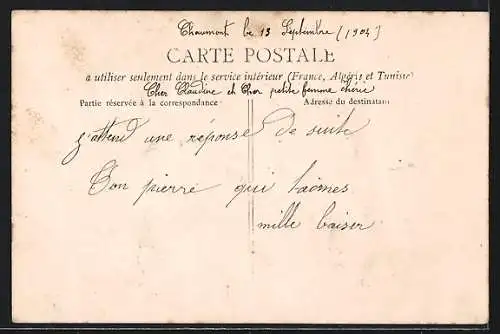 Chaumont le 13 Septembre (1904)
CARTE POSTALE
a utiliser seulement dans le service intérieur (France, Algérie et Tunisie
Cher Claudine et Cher petite femme chérie
Partie réservée à la correspondance Adresse du destinataire
j'attend une réponse de suite
Ton pierre qui t'aimes
mille baiser